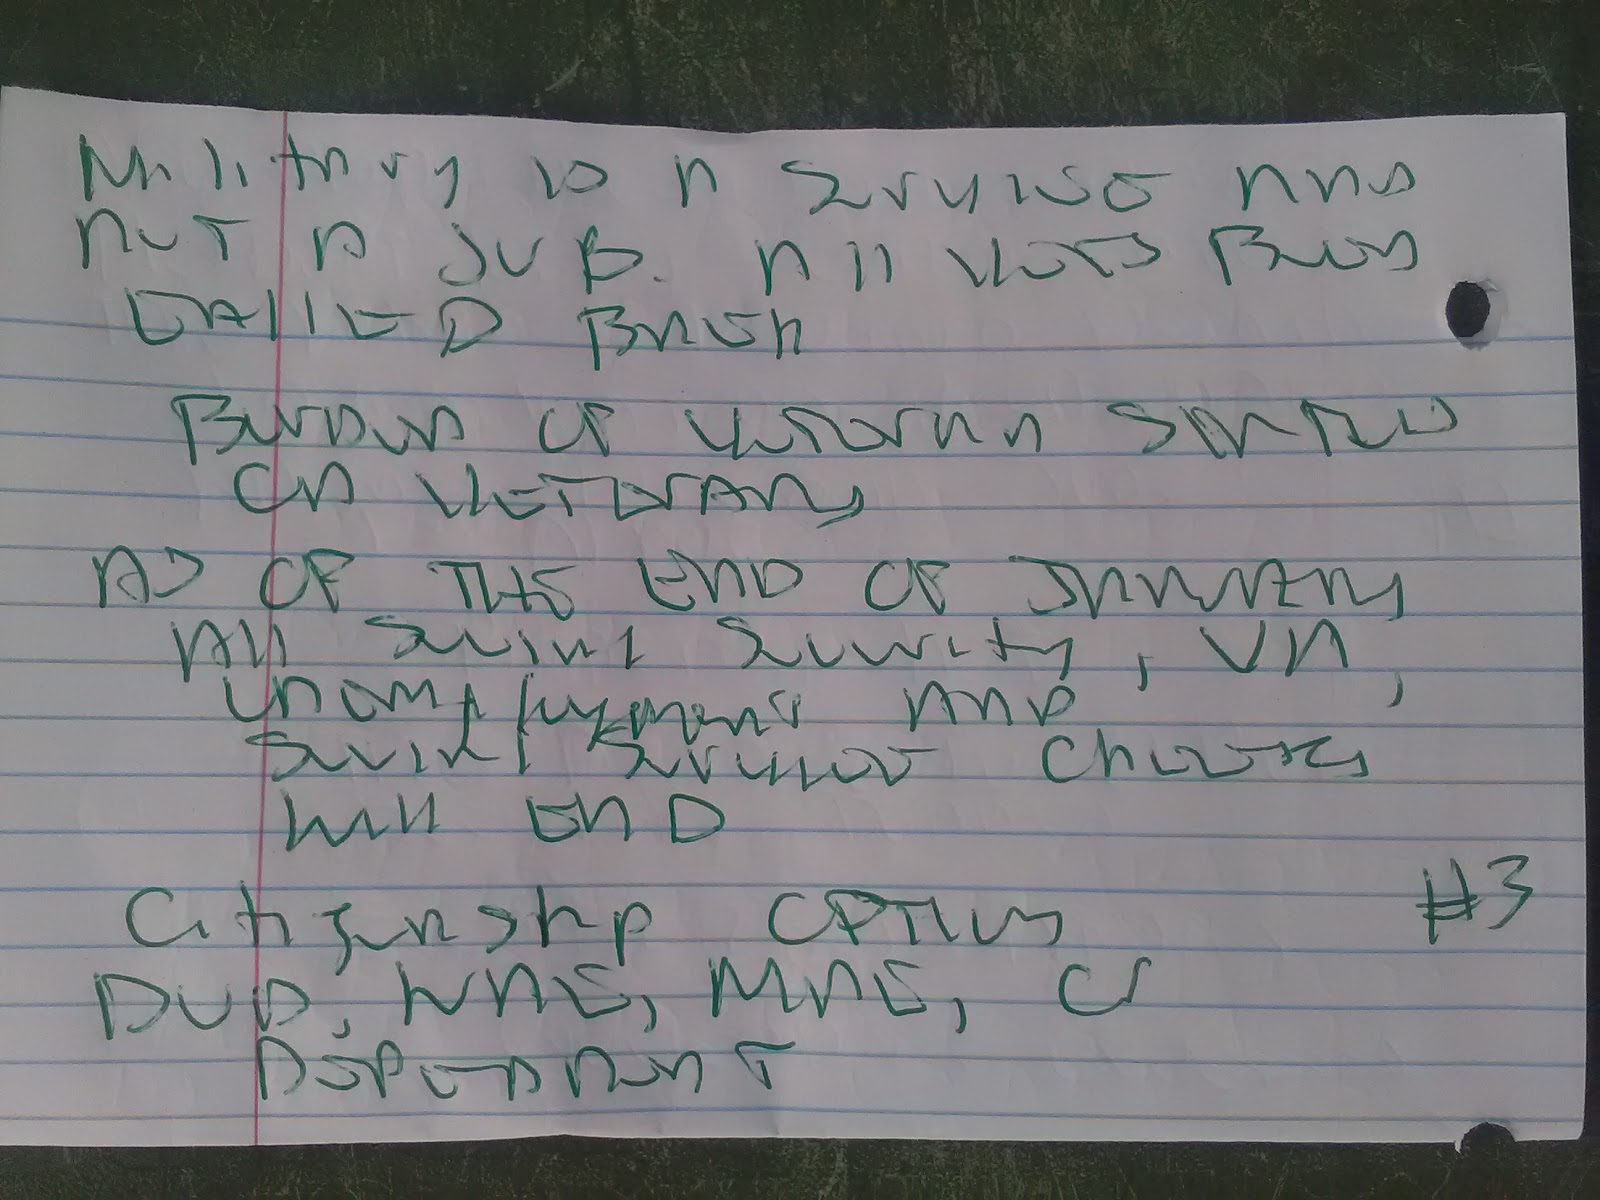 Military is a Service and
not a Job. All Vets Being
CAllED BACK
Burden of Veteran Status
on VETERANs
AS OF THE END OF JANUARY
All Social Security, VA,
Unemployment AND
Social Service Checks
will END
Citizenship OPTIONs
#3
DOD, WAE, MAE, or
DEPENDANT